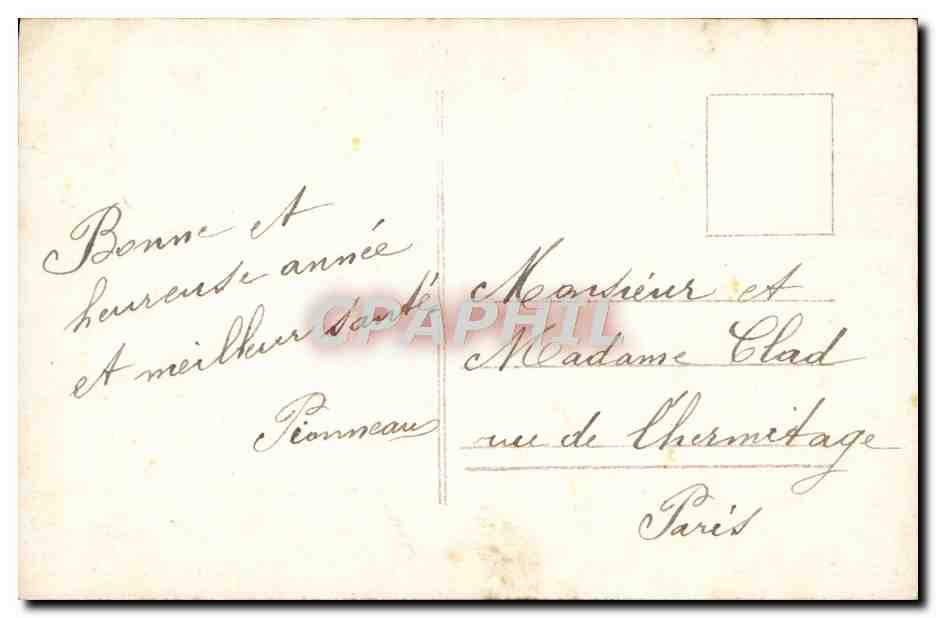 Bonne et
heureuse année
et meilleur santé
Pionneau
Monsieur et
Madame Clad
rue de l'hermitage
Paris
CPAPHIL